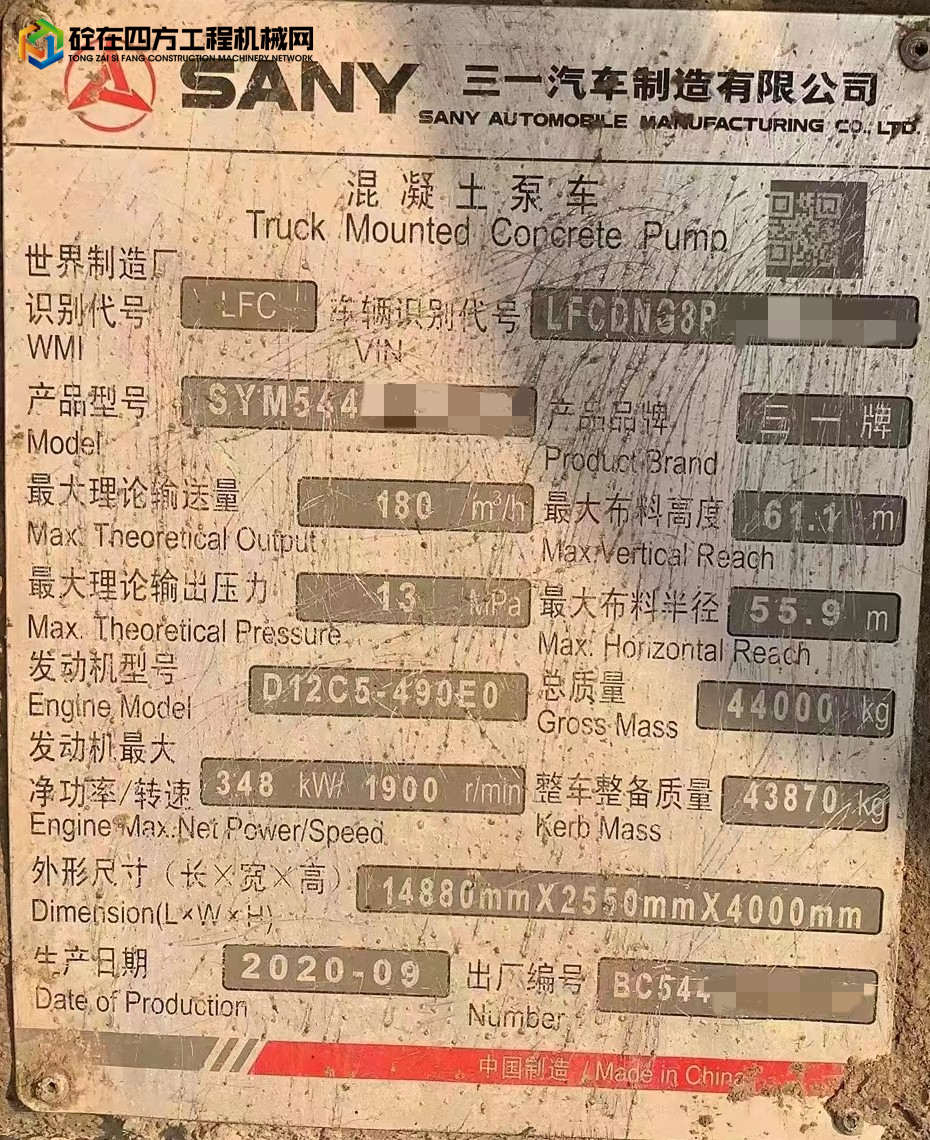 砼在四方工程机械网
TONG ZAI SI FANG CONSTRUCTION MACHINERY NETWORK
SANY 三一汽车制造有限公司
SANY AUTOMOBILE MANUFACTURING CO., LTD.
混凝土泵车
Truck Mounted Concrete Pump
世界制造厂
识别代号 LFC 车辆识别代号 LFCDNG8P
WMI VIN
产品型号 SYM544 产品品牌 三一牌
Model Product Brand
最大理论输送量 180 m³/h 最大布料高度 61.1 m
Max. Theoretical Output Max.Vertical Reach
最大理论输出压力 13 MPa 最大布料半径 55.9 m
Max. Theoretical Pressure Max. Horizontal Reach
发动机型号 D12C5-490E0 总质量 44000 kg
Engine Model Gross Mass
发动机最大
净功率/转速 348 kW/ 1900 r/min 整车整备质量 43870 kg
Engine Max.Net Power/Speed Kerb Mass
外形尺寸（长×宽×高） 14880mmX2550mmX4000mm
Dimension(L×W×H)
生产日期 2020-09 出厂编号 BC544
Date of Production Number
中国制造 / Made in China